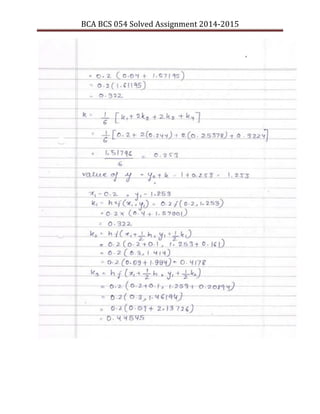 BCA BCS 054 Solved Assignment 2014-2015
= 0.2 (0.04 + 1.57195)
= 0.2 (1.61195)
= 0.322
k = 1/6 [k₁ + 2k₂ + 2k₃ + k₄]
= 1/6 [0.2 + 2(0.244) + 2(0.25378) + 0.3224]
= 1.51796 / 6 = 0.253
value of y = y₀ + k = 1 + 0.253 = 1.253
x₁ = 0.2, y₁ = 1.253
k₁ = hf(x₁, y₁) = 0.2 f(0.2, 1.253)
= 0.2 × (0.4 + 1.57001)
= 0.322
k₂ = hf(x₁ + 1/2 h, y₁ + 1/2 k₁)
= 0.2 (0.2 + 0.1, 1.253 + 0.161)
= 0.2 (0.3, 1.414)
= 0.2 (0.09 + 1.999) = 0.4178
k₃ = hf(x₁ + 1/2 h, y₁ + 1/2 k₂)
= 0.2 (0.2 + 0.1, 1.253 + 0.20894)
= 0.2 (0.3, 1.46194)
= 0.2 (0.09 + 2.13726)
= 0.44545